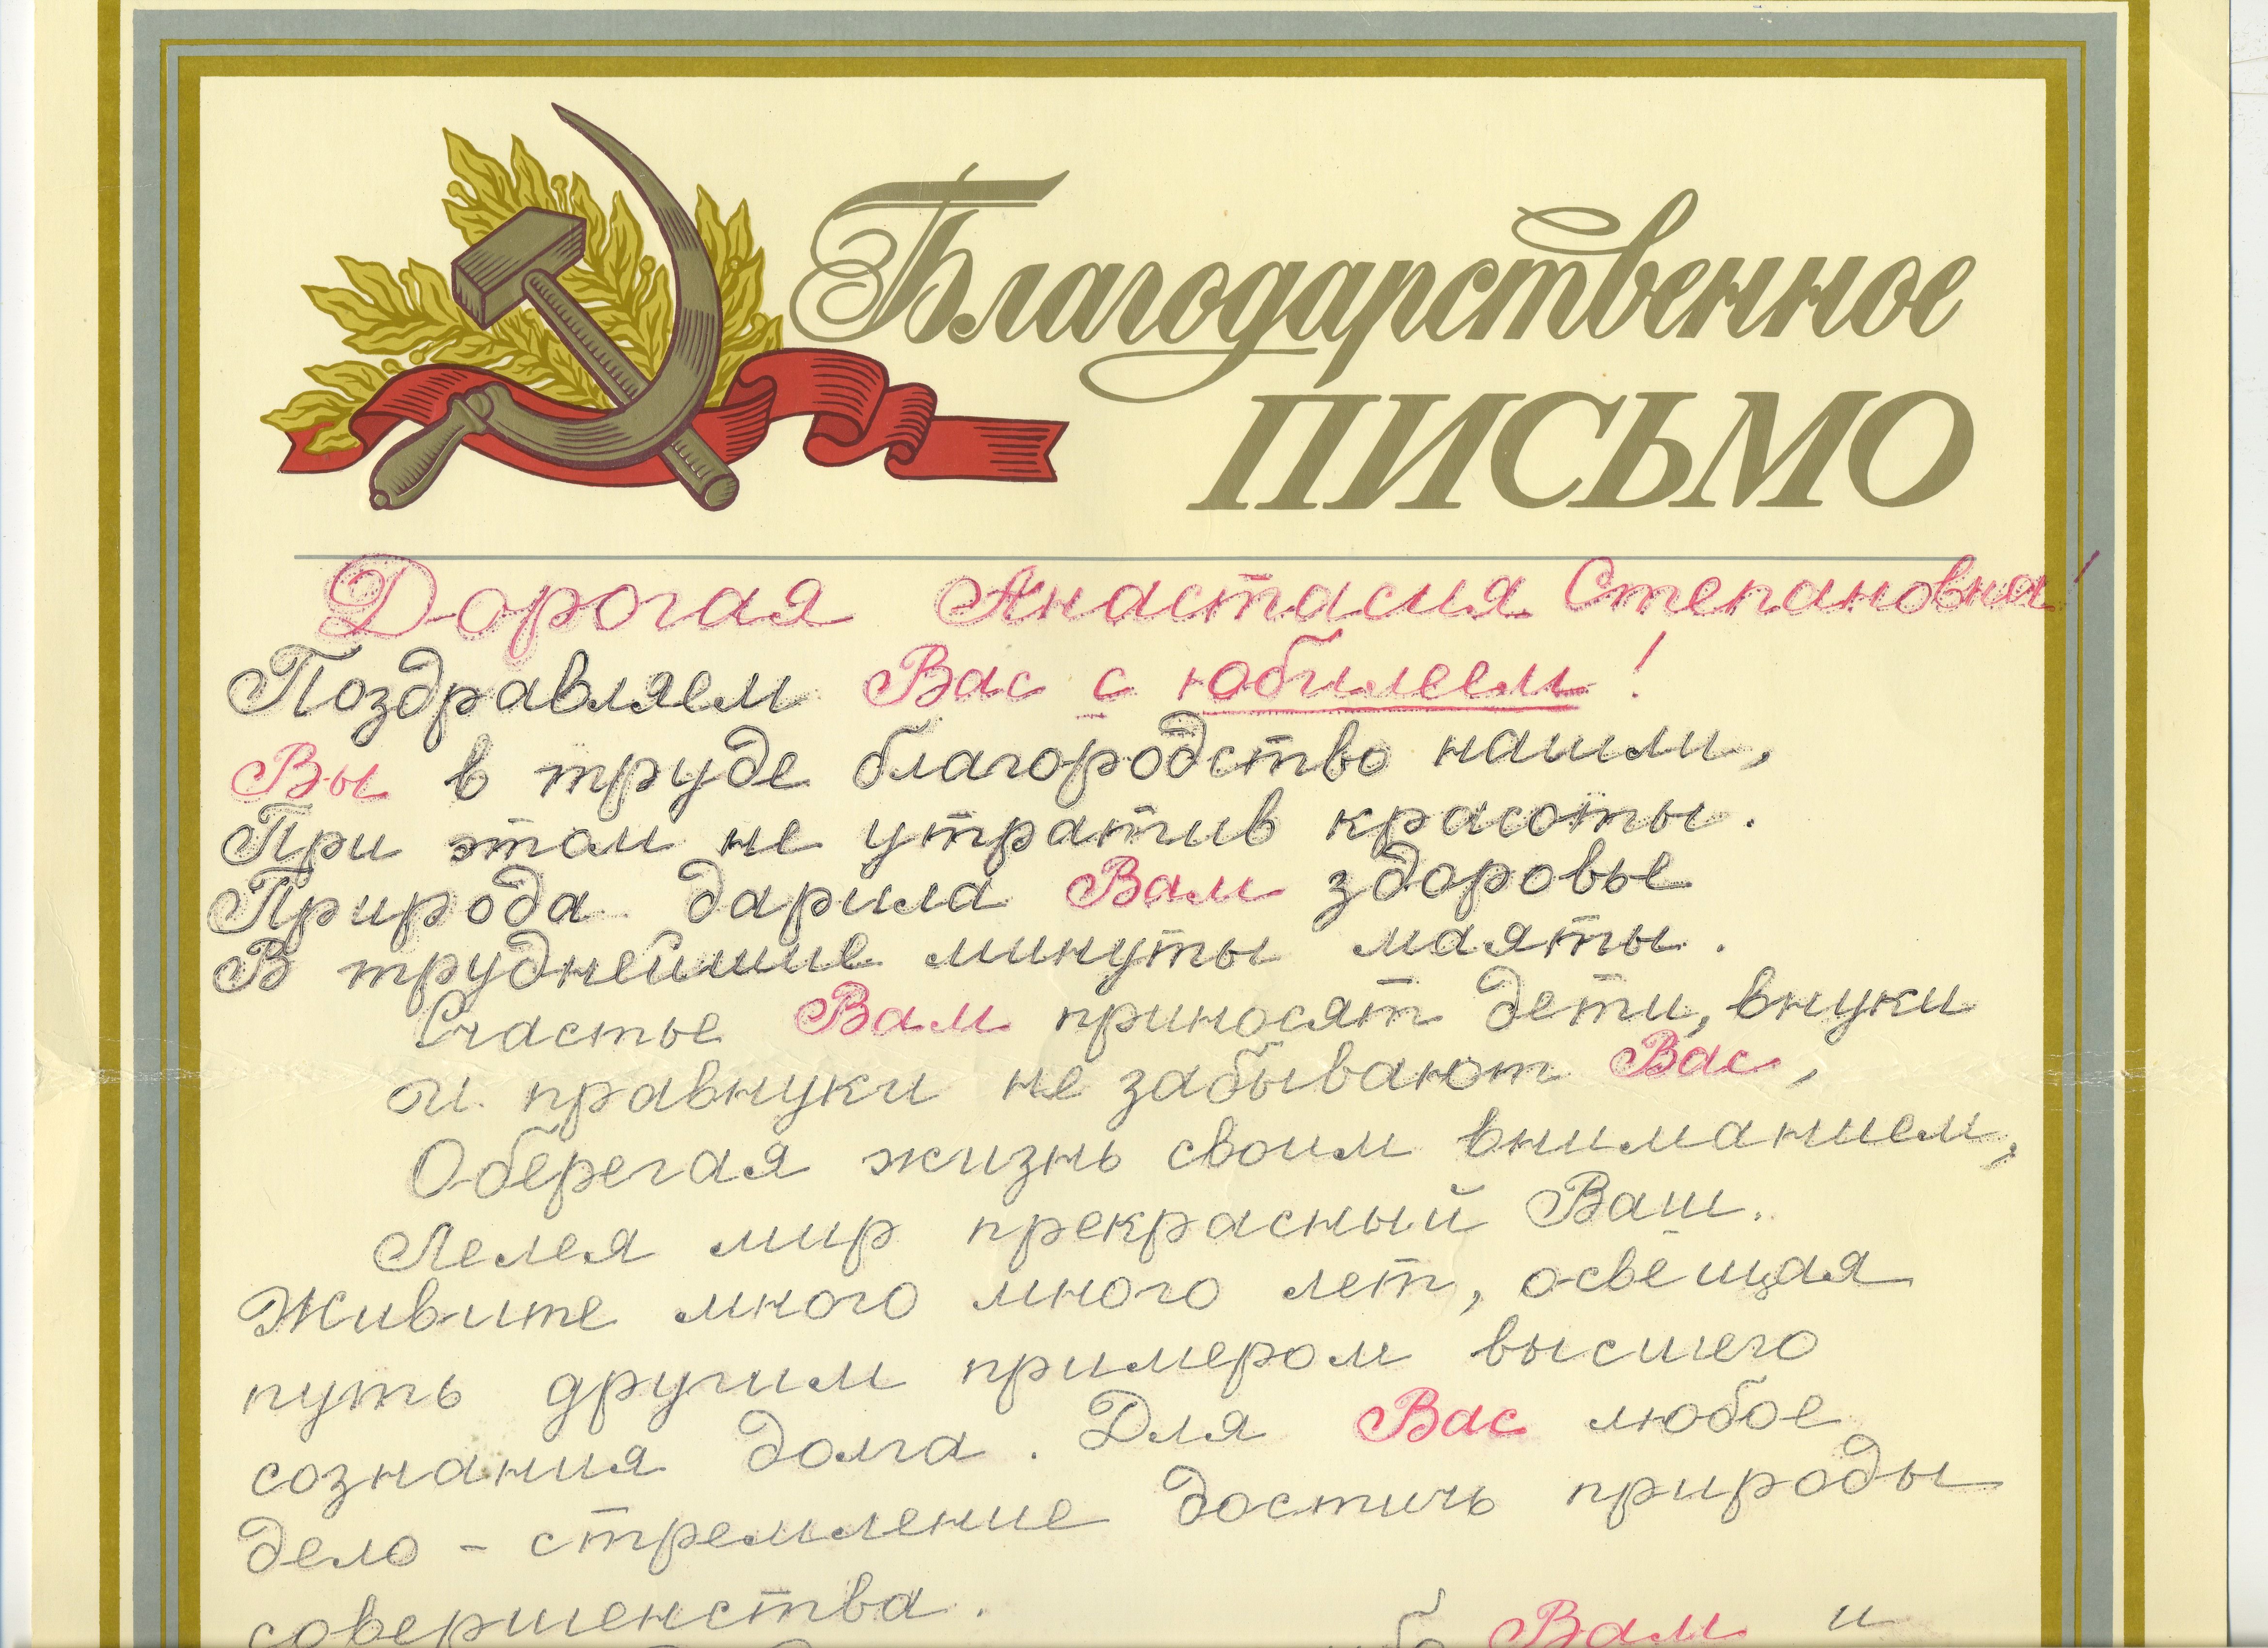 Благодарственное
ПИСЬМО
Дорогая Анастасия Степановна!
Поздравляем Вас с юбилеем!
Вы в труде благородство нашли,
При этом не утратив красоты.
Природа дарила Вам здоровье
В труднейшие минуты маяты.
Счастье Вам приносят дети, внуки
И правнуки не забывают Вас,
Оберегая жизнь своим вниманием,
Лелея мир прекрасный Ваш.
Живите много много лет, освещая
путь другим примером высшего
сознания долга. Для Вас любое
дело - стремление достичь природы
совершенства.
Вам и